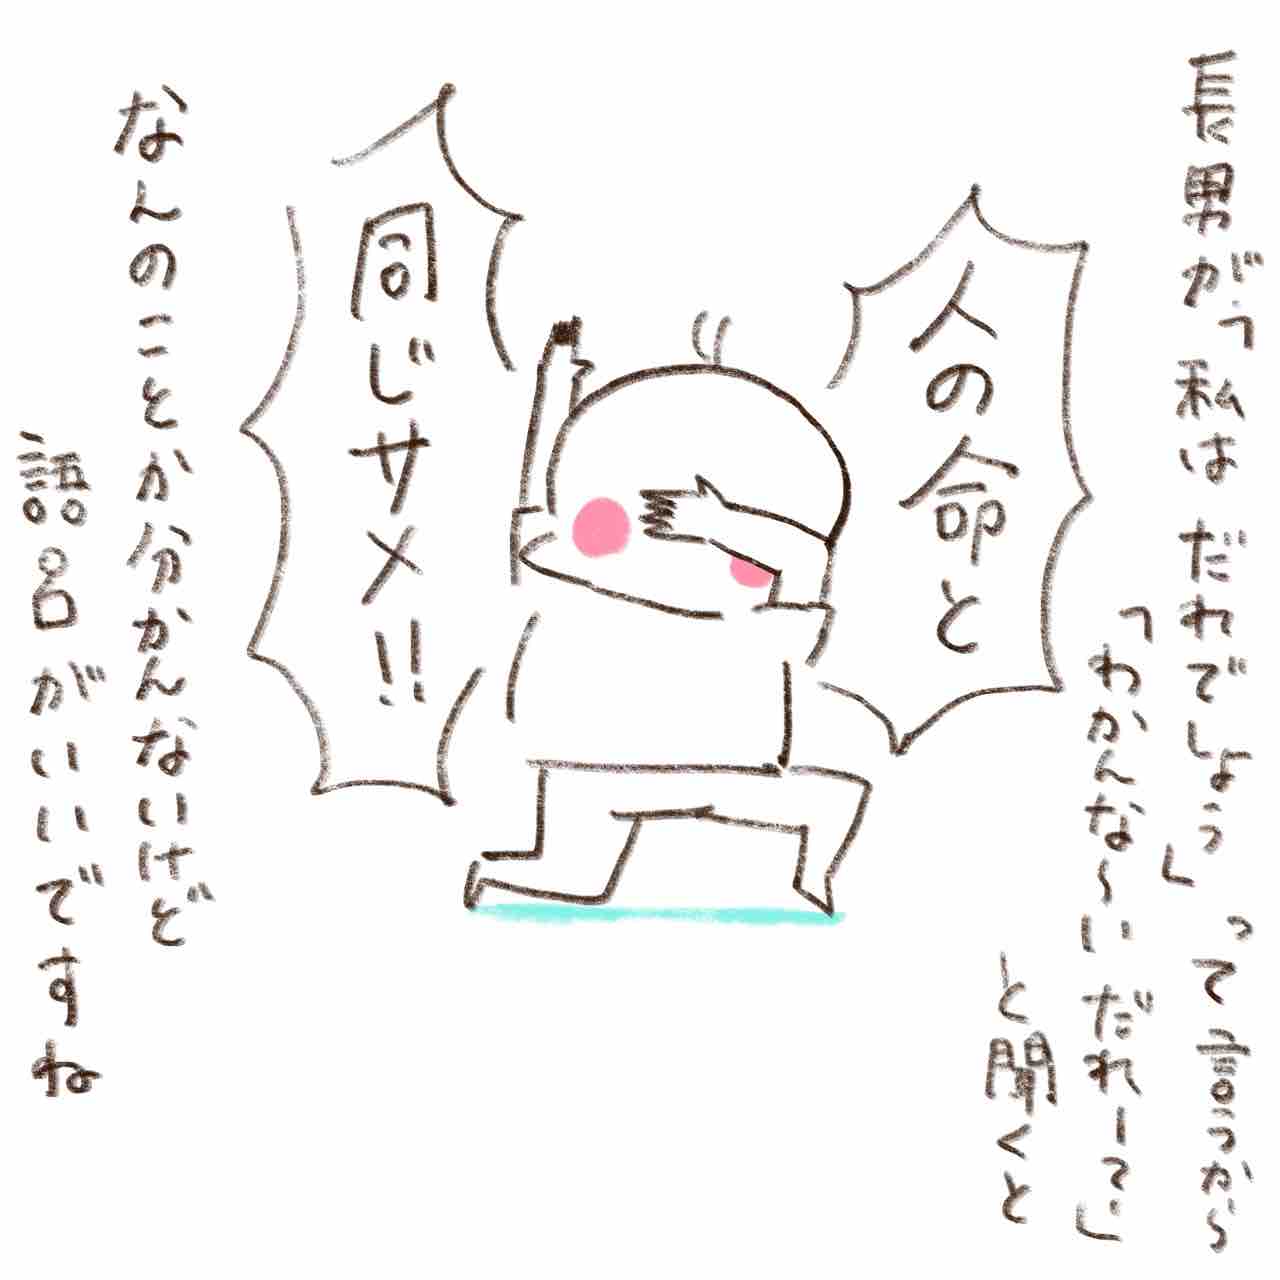 長男が「私は だれでしょう」って言うから
「わかんな〜い だれーで」
と聞くと
人の命と
同じサメ!!
なんのことか分かんないけど
語呂がいいですね